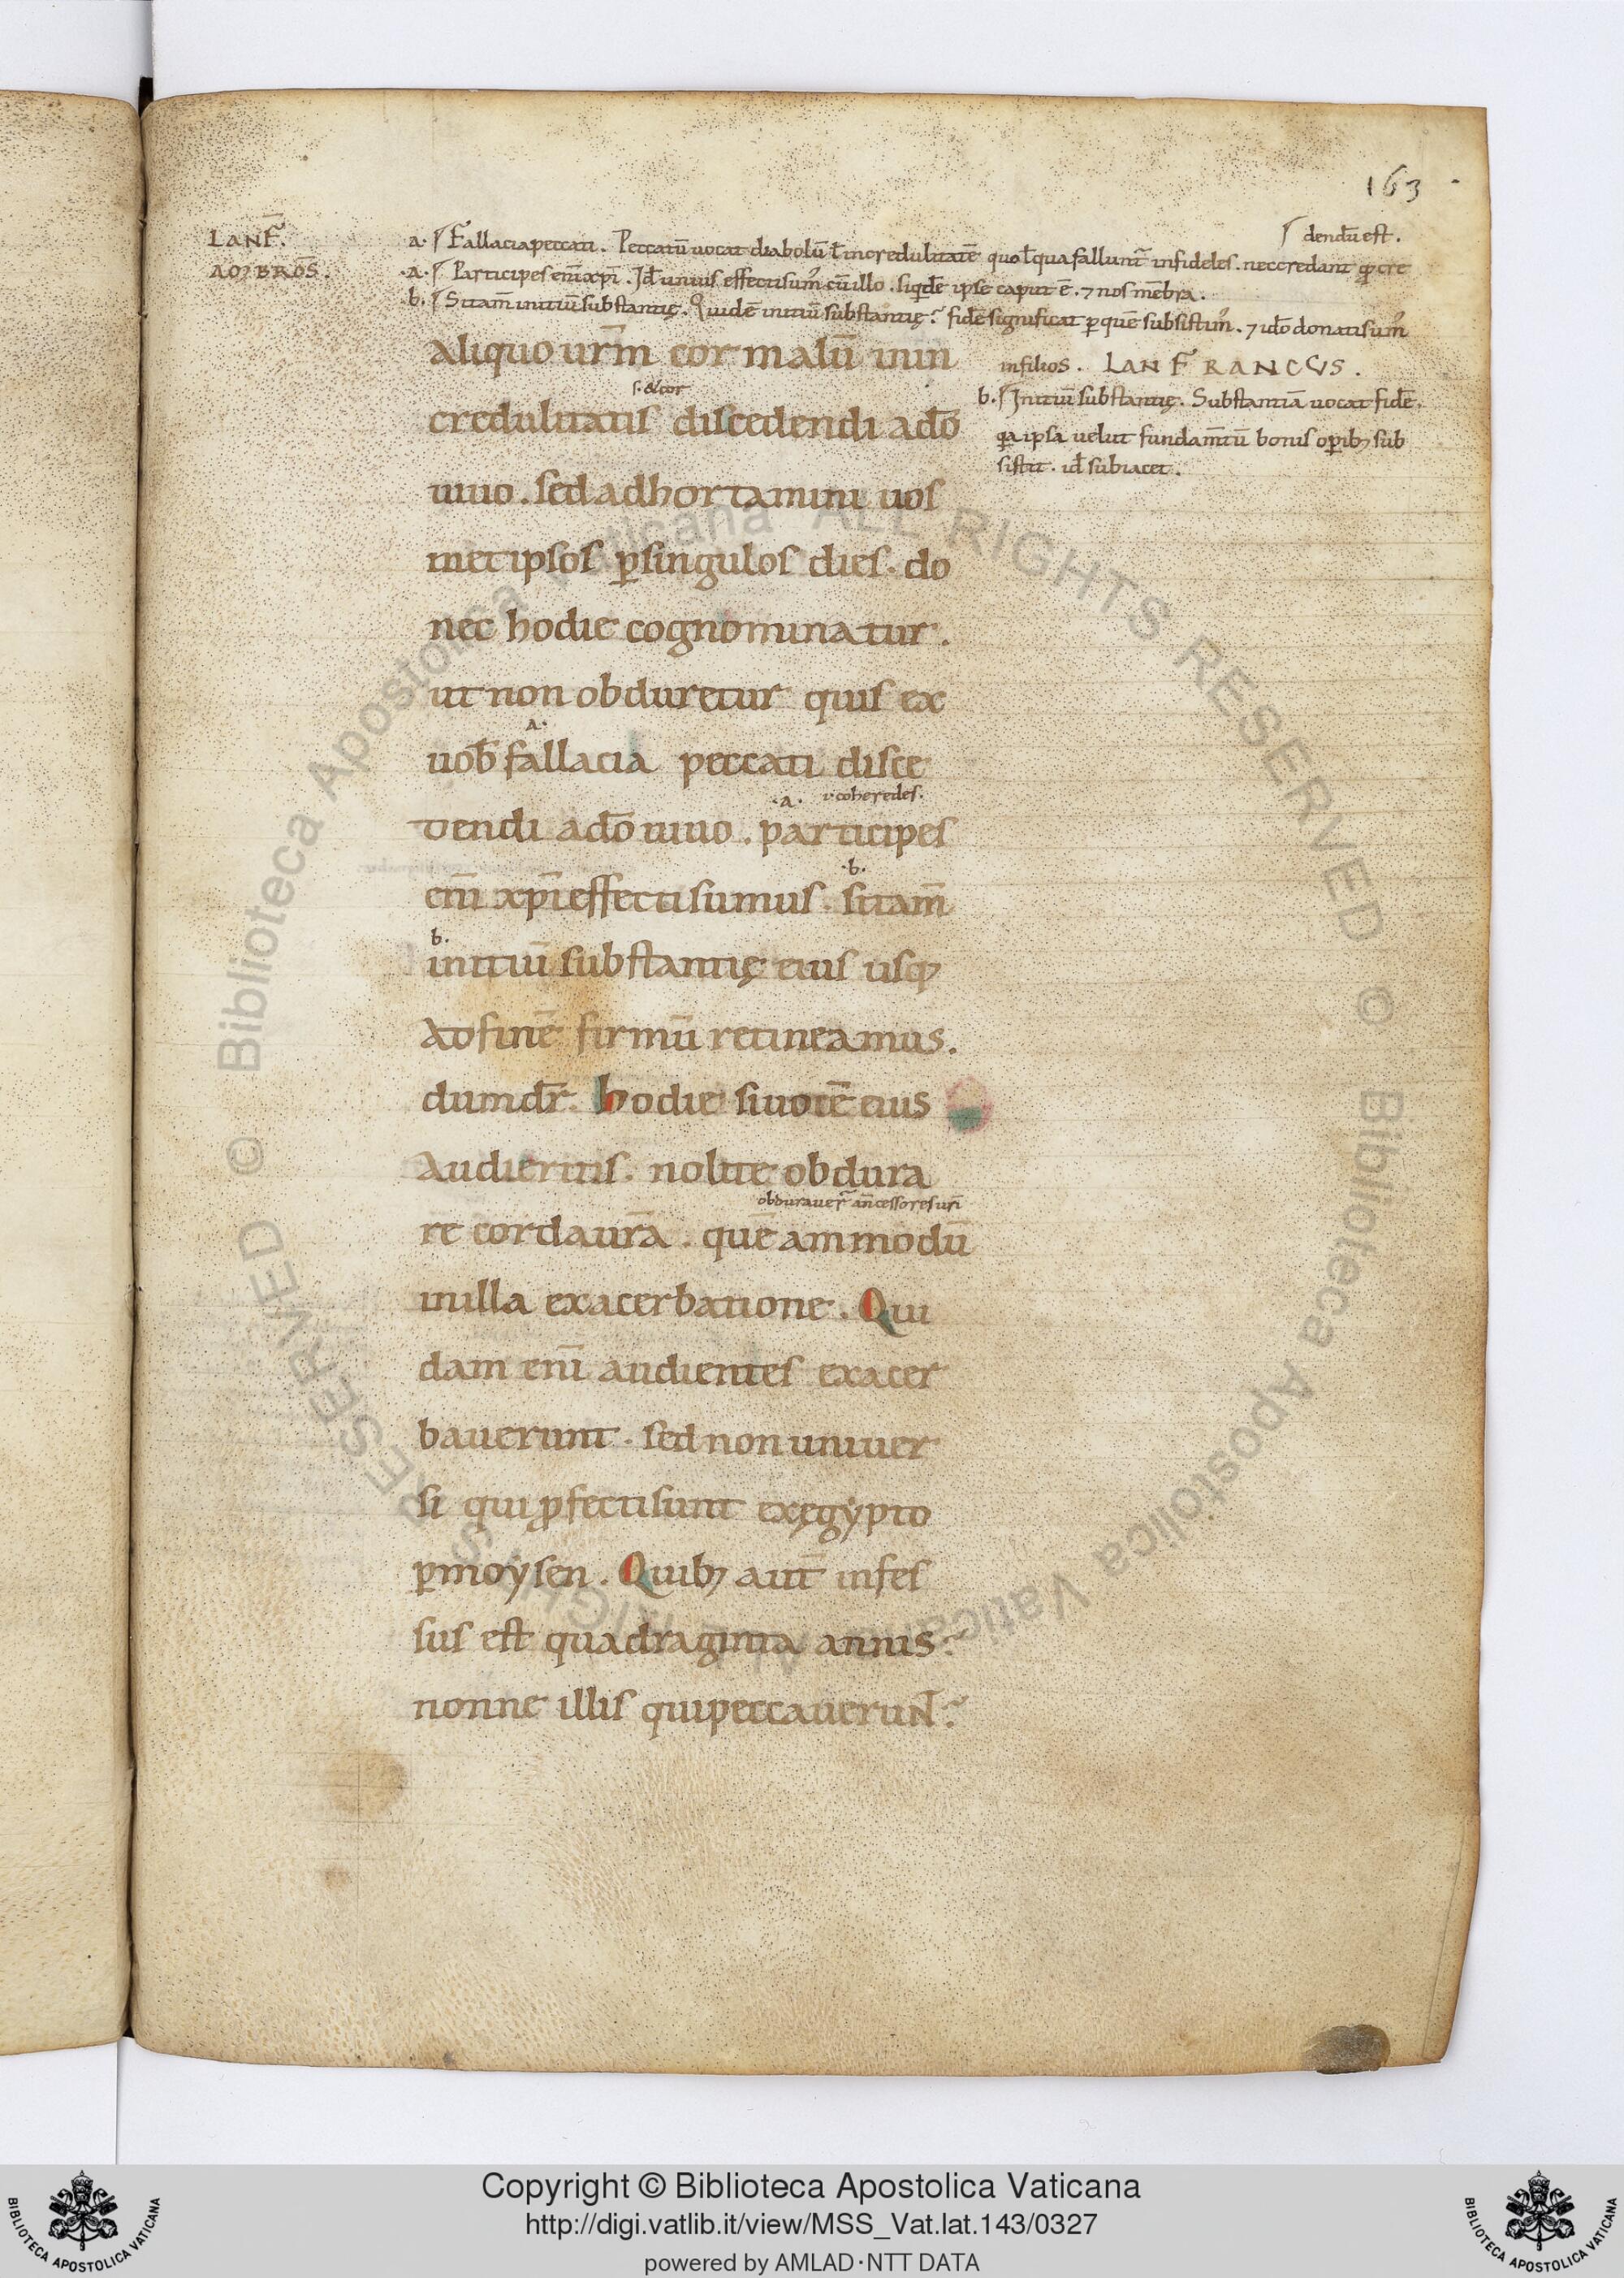 163
LANF̄.
a. Fallacia peccati. Peccatū uocat diabolū ł incredulitatē quo ł qua falluntr̄ infideles. nec credant qđ cre
dendū est.
AOMBROS̄.
.a. Participes enī xp̄i. Id̄ unius effecti sum̄ cū illo. siqidē ipse caput ē. ⁊ nos mēbra.
b. Si tam̄ initiū substantię. Quidē initiū substantię? fidē significat ꝑ quē subsistim̄. ⁊ idō donati sum̄
in filios. LANFRANCUS.
b. Initiū substantię. Substantiā uocat fidē.
qa ipsa uelut fundam̄tū bonis oꝑibꝫ sub
sistit. id̄ subiacet.
aliquo ur̄m cor malū inin
s. & cor
credulitatis discedendi ad̄o
uiuo. sed adhortamini uos
metipsos ꝑ singulos dies. do
nec hodie cognominatur.
ut non obduretur quis ex
a.
uob̄ fallacia peccati disce
.a. i. coheredes.
dendi ad̄o uiuo. participes
.b.
enī xp̄i effecti sumus. si tam̄
b.
initiū substantię eius usqꝫ
ad finē firmū retineamus.
dum dr̄. hodie si uocē eius
audieritis. nolite obdura
obdurauer̄ ancessores ur̄i
re corda ur̄a. quē ammodū
in illa exacerbatione. Qui
dam enī audientes exacer
bauerunt. sed non uniuer
si qui ꝓfecti sunt ex ęgypto
ꝑ moysen. Quibꝫ aut̄ infes
sus est quadraginta annis?
nonne illis qui peccauerunt?
© Biblioteca Apostolica Vaticana ALL RIGHTS RESERVED © Biblioteca Apostolica Vaticana ALL RIGHTS RESERVED
BIBLIOTECA APOSTOLICA VATICANA
Copyright © Biblioteca Apostolica Vaticana
http://digi.vatlib.it/view/MSS_Vat.lat.143/0327
powered by AMLAD·NTT DATA
BIBLIOTECA APOSTOLICA VATICANA